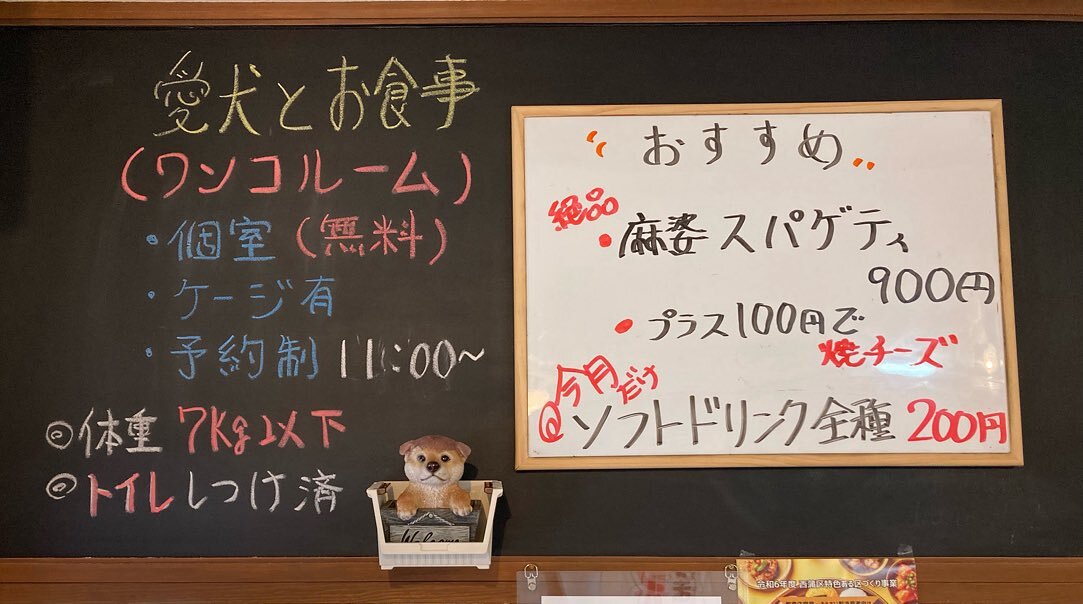 愛犬とお食事
(ワンコルーム)
・個室(無料)
・ケージ有
・予約制 11:00~
◎体重 7kg以下
◎トイレしつけ済
Welcome
おすすめ
絶品
・麻婆スパゲティ
900円
・プラス100円で
焼チーズ
今月だけ
@ソフトドリンク全種 200円
令和6年度 西蒲区特色ある区づくり事業